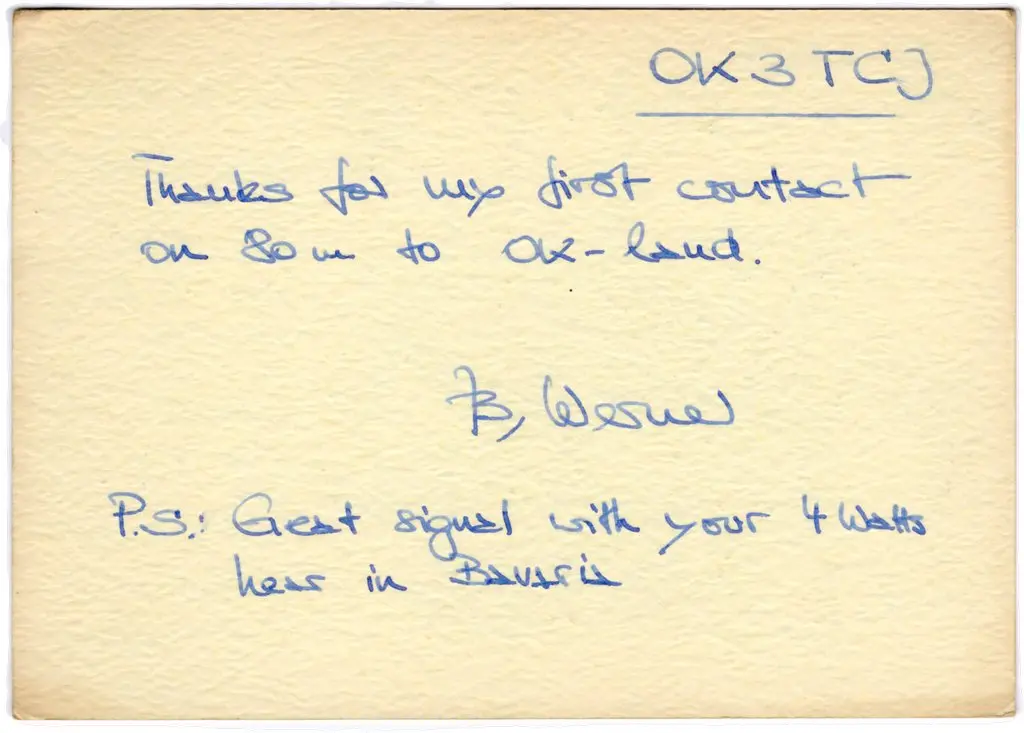 OK3TCJ
Thanks for my first contact
on 80m to OK-land.
73, Werner
P.S.: Great signal with your 4 Watts
hear in Bavaria